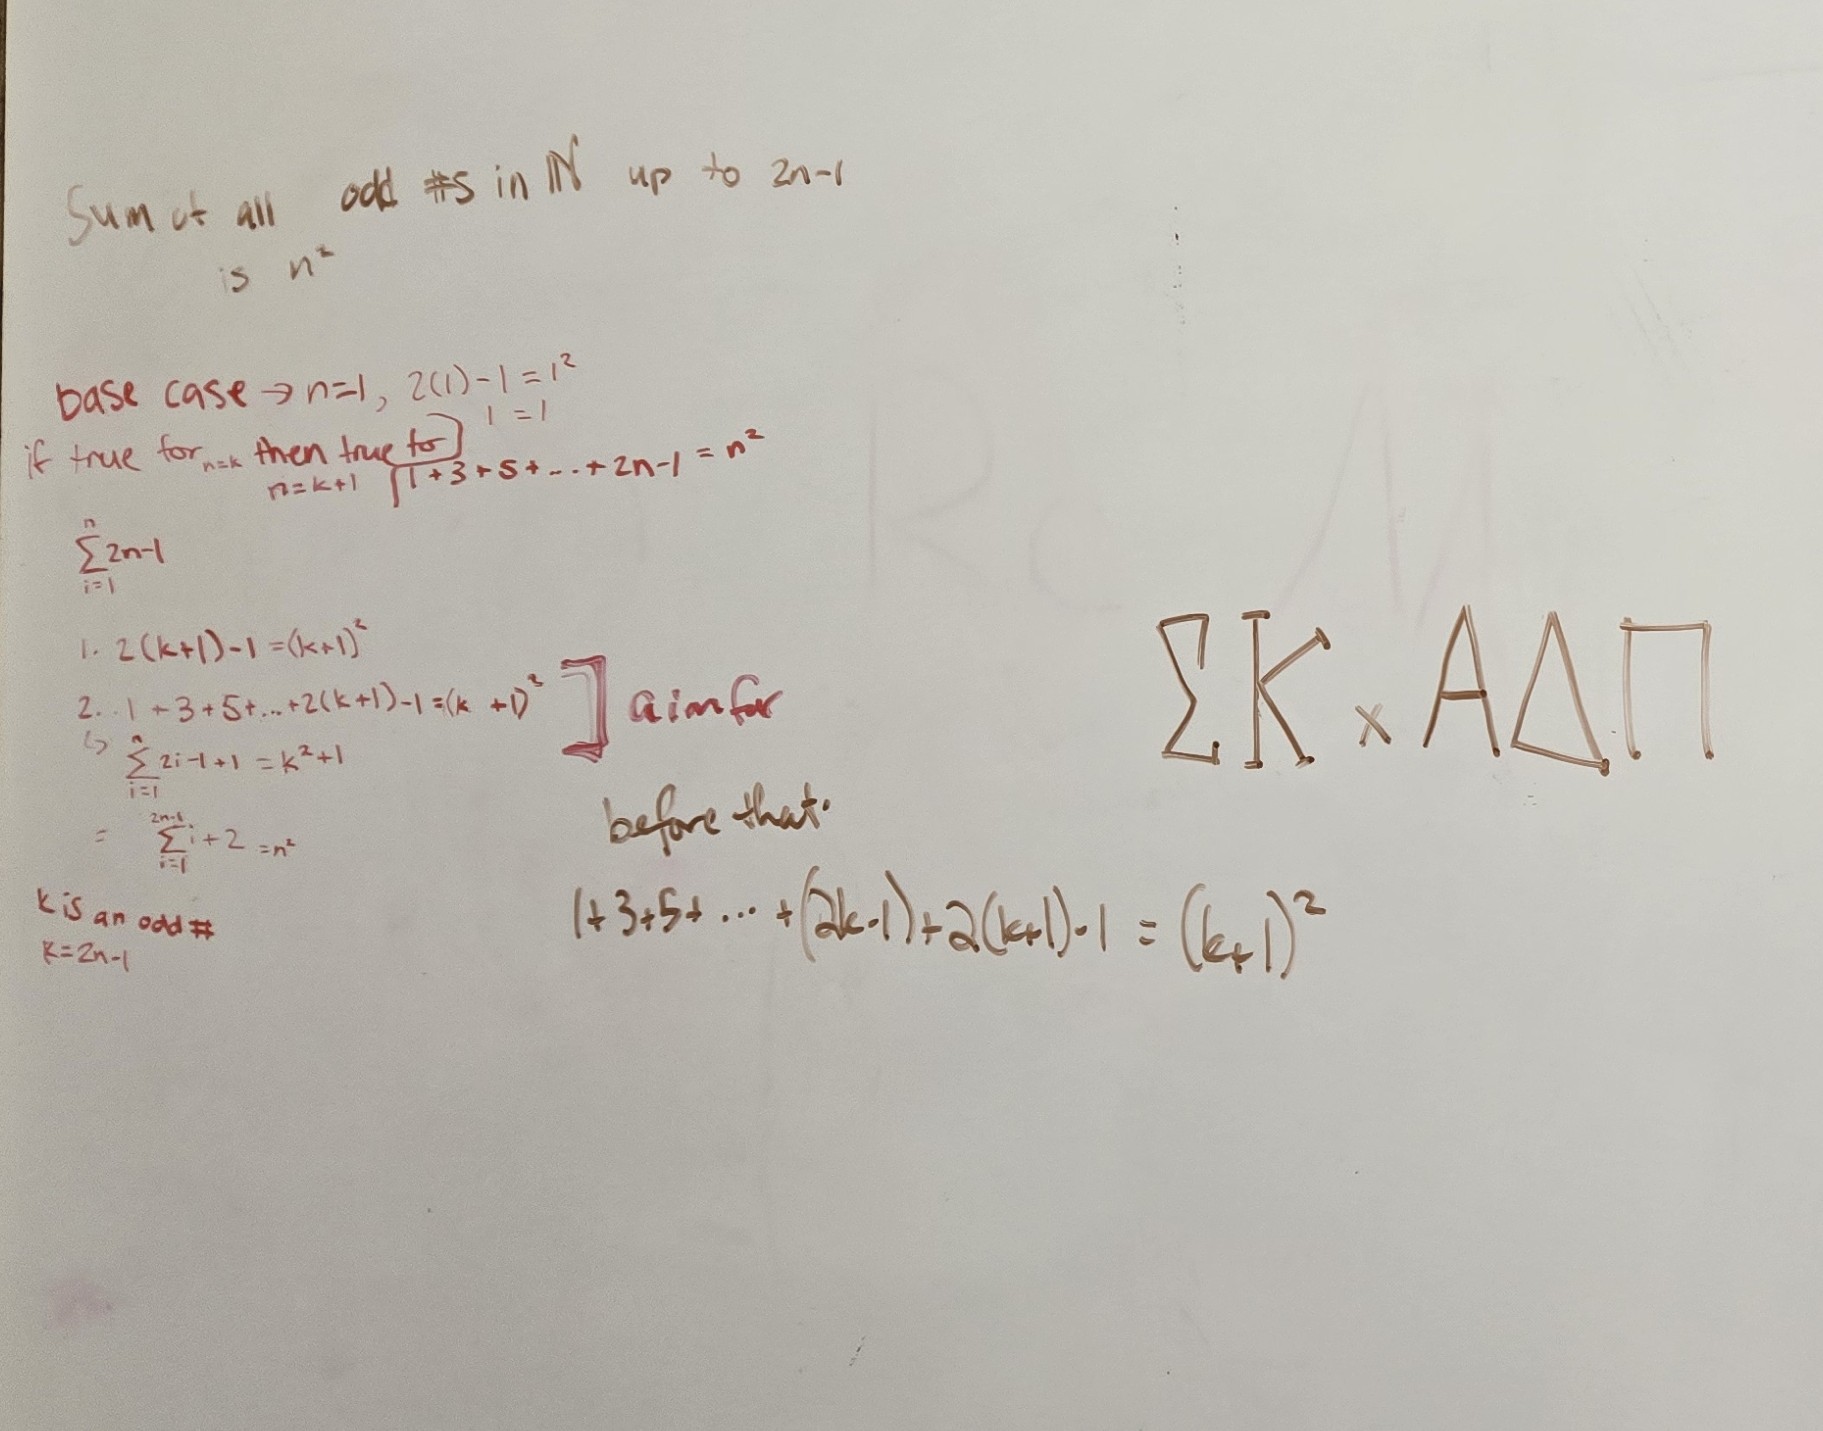 Sum of all odd #s in ℕ up to 2n-1
is n²
base case → n=1, 2(1)-1 = 1²
1 = 1
if true for n=k then true for
n=k+1
1+3+5+...+2n-1 = n²
n
Σ 2n-1
i=1
1. 2(k+1)-1=(k+1)²
2. 1+3+5+...+2(k+1)-1=(k+1)²
] aim for
↳ n
Σ 2i-1+1 = k²+1
i=1
2n-1
= Σ i+2 =n²
i=1
k is an odd #
k=2n-1
before that.
1+3+5+ ... +(2k-1)+2(k+1)-1 = (k+1)²
ΣK x AΔΠ